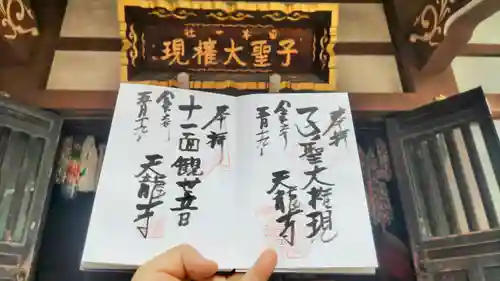 日本一社
子聖大権現
奉拝
子聖大権現
天龍寺
令和二年
五月十九日
奉拝
十一面観世音
天龍寺
令和二年
五月十九日